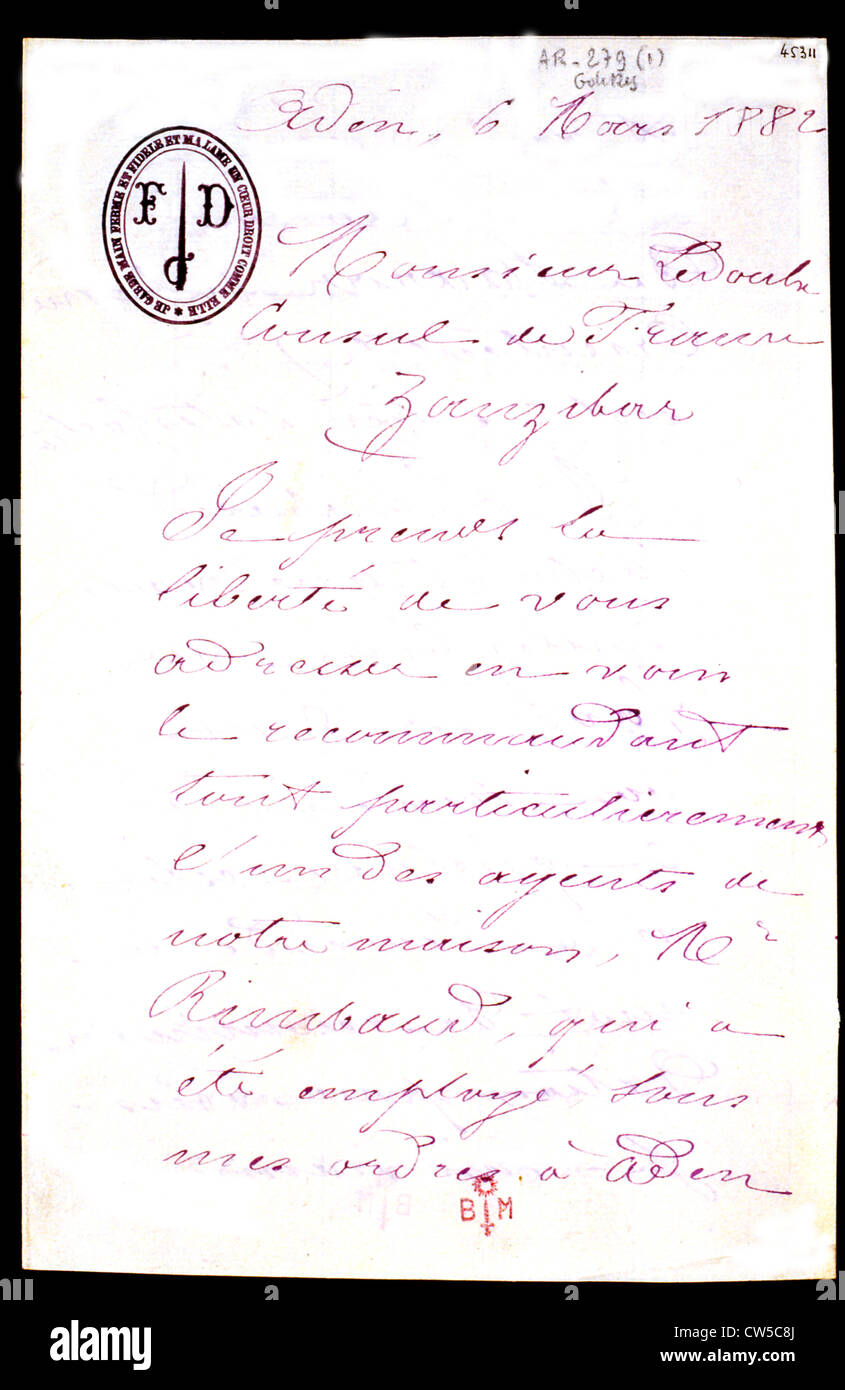 AR-279 (1)
45311
Aden, 6 Mars 1882
JE GARDE MAIN FERME ET FIDELE ET MA LAME UN CŒUR DROIT COMME ELLE *
F D
Monsieur Ledoulx
Consul de France
Zanzibar
Je prends la
liberté de vous
adresser en vous
le recommandant
tout particulièrement
l'un des agents de
notre maison, Mr
Rimbaud, qui a
été employé sous
mes ordres à Aden
B M
alamy
Image ID: CW5C8J
www.alamy.com